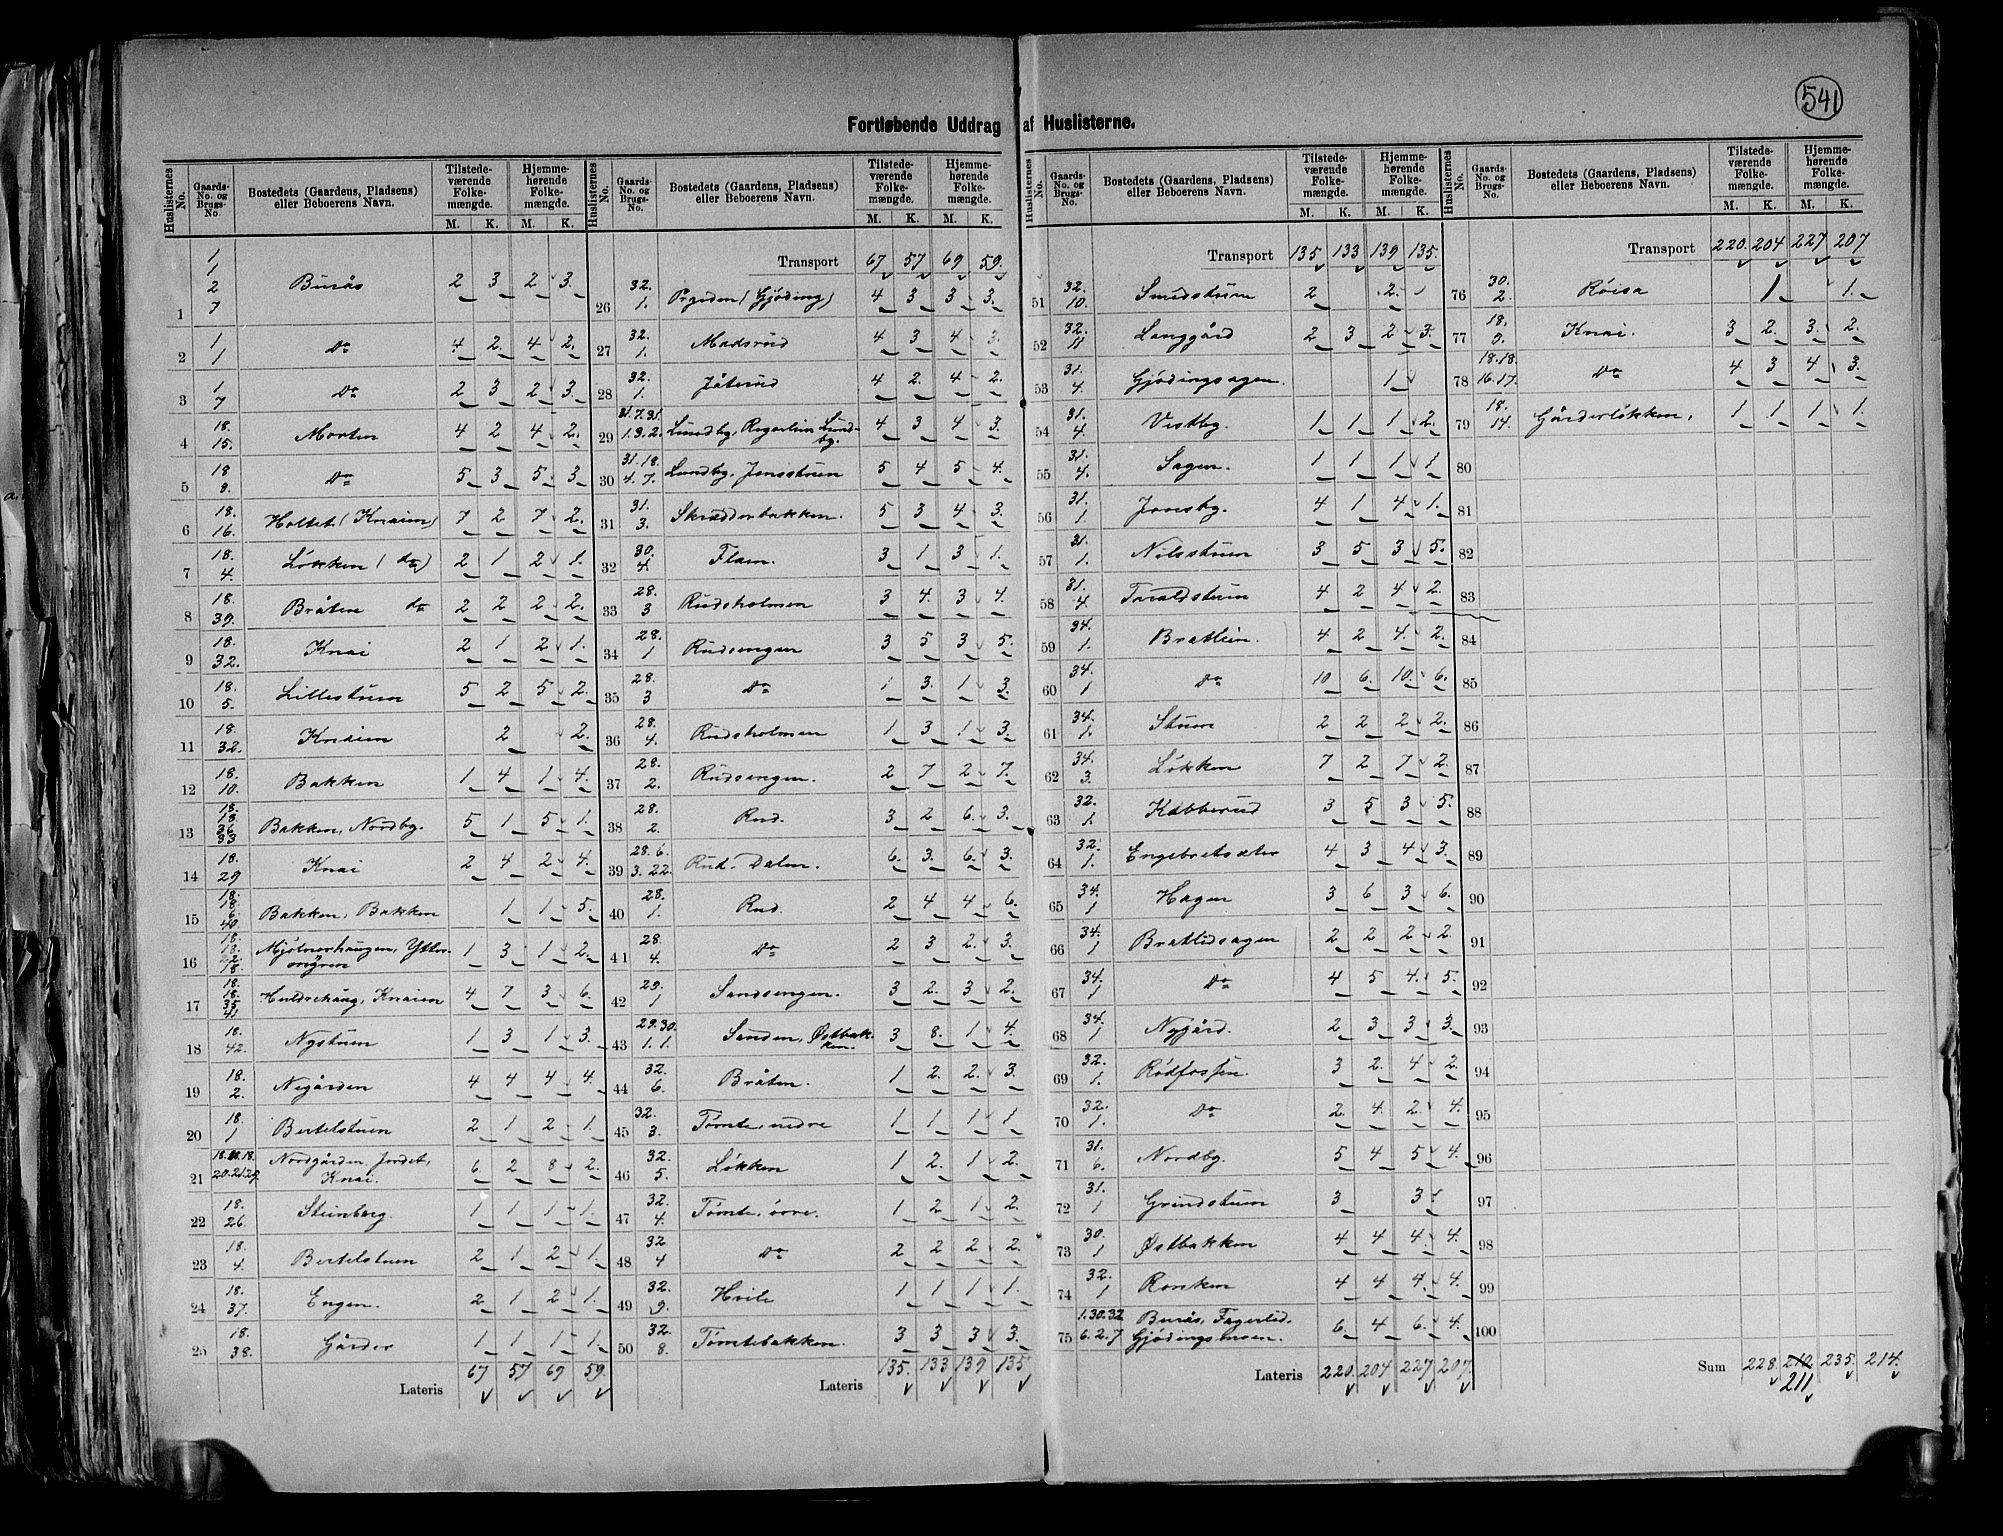 541
Fortløbende Uddrag af Huslisterne.
Huslisternes No. Gaards-No. og Brugs-No. Bostedets (Gaardens, Pladsens) eller Beboerens Navn. Tilstedeværende Folkemængde. Hjemmehørende Folkemængde.
M. K. M. K.
1 1 1 2 7 Burås 2 3 2 3.
2 1 1 Do 4 2. 4 2.
3 1 7 Do 2 3 2 3.
4 18. 15. Morten 4 2 4 2.
5 18 8. Do 5 3 5 3.
6 18. 16. Holtet (Knaien) 7 2 7 2.
7 18. 4. Løkken (do) 2 1 2 1.
8 18. 39. Bråten do 2 2 2 2.
9 18. 32. Knai 2 1 2 1.
10 18. 5. Lillestuen 5 2 5 2.
11 18. 32. Knaien 2 2.
12 18. 10. Bakken 1 4 1 4.
13 18. 18. 36 33 Bakken, Nordby. 5 1 5 1.
14 18. 29 Knai 2 4 2 4.
15 18. 18. 6. 40 Bakken, Bakken 1 1 5.
16 18. 18. 18. Mjølnerhaugen, Ytterengen 1 3 1 2.
17 18. 18. 35 41 Huldrehaug, Knaien 4 7 3 6.
18 18. 42. Nystuen 1 3 1 3.
19 18. 2. Negården 4 4 4 4.
20 18. 1 Bertelstuen 2 1 2 1.
21 18.18.18. 20.21.29. Nordgården, Jordet, Knai. 6. 2 8 2.
22 18. 26 Steinberg. 1 1 1 1.
23 18. 4. Bertelstuen 2 1 2 1.
24 18. 37. Engen. 2 1 2 1.
25 18. 38. Gårder 1 1 1 1.
Lateris 67 57 69 59.
Transport 67 57 69 59.
26 32. 1. (Gjøding) 4 3 3 3.
27 32. 1. Madsrud 4 3 4 3.
28 32. 1. Jåterud 4 2. 4 2.
29 31.7.31. 1.3.2. Lundby, Lundby. 4 3 4 3.
30 31.18. 4.7. Lundby, Jensstuen 5 4 5 4.
31 31. 3. Skrædderbakken. 5 3 4 3.
32 30. 4. Flaen. 3 1 3 1.
33 28. 3 Rudsholmen 3 4. 3 4.
34 28. 1 Rudsengen 3 5 3 5.
35 28. 3 Do 1 3. 1 3.
36 28. 4. Rudsholmen 1 3 1 3.
37 28. 2. Rudsengen. 2 7 2 7.
38 28. 2. Rud. 3 2 6. 3.
39 28.6. 3.22. Rud. Dalen. 6. 3. 6. 3.
40 28. 1. Rud. 2 4 4 6.
41 28. 4. Do 2 3 2. 3.
42 29. 1 Sandsengen. 3 2. 3 2.
43 29.30. 1.1. Sanden, Østbakken. 3 8. 1 4.
44 32. 6. Bråten. 1 2. 2. 3.
45 32. 3. Tømte, nedre 1 1 1 1.
46 32. 5. Løkken 1 2. 1 2.
47 32. 4. Tømte, øvre. 1 2 1 2.
48 32. 4 Do 2 2 2 2.
49 32. 9. Hvile 1 1 1 1.
50 32. 8. Tømtebakken. 3 3 3 3.
Lateris 135. 133 139 135.
Transport 135 133 139 135.
51 32. 10. Smedstuen 2 2.
52 32. 11 Langgård 2 3 2 3.
53 31. 4. Gjødingsagen. 1
54 31. 4. Vestby. 1 1 1 2.
55 31. 4. Sagen. 1 1 1 1.
56 31. 1 Jonsby. 4 1 4 1.
57 31. 1. Nilsstuen 3 5 3 5.
58 31. 4. Taraldstuen 4 2 4 2.
59 34. 1. Bratlien. 4 2 4. 2.
60 34. 1 Do 10 6. 10. 6.
61 34. 1. Stuen 2 2 2 2.
62 34. 3. Løkken 7 2 7 2.
63 32. 1. Kabberud 3 5 3 5.
64 32. 1. Engebretsæter 4 3 4 3.
65 34. 1 Hagen 3 6 3 6.
66 34. 1 Bratlidsagen 2 2 2 2.
67 34. 1 Do 4 5 4. 5.
68 34. 1 Nygård. 2 3 3 3.
69 32. 1. Rødfossen. 3 2. 4 2.
70 32. 1. Do 2. 4. 2. 4.
71 31. 6. Nordby. 5 4 5 4.
72 31. 1 Grindstuen 3 3
73 30. 1 Østbakken 4 4 4. 4.
74 32. 1 Ronken 4 4 4. 4.
75 1.30.32 6.2.7 Burås, Fagerlid, Gjødingsmoen. 6. 4 6. 4.
Lateris 220. 204 227 207.
Transport 220. 204 227 207
76 30. 2. Røisa 1 1.
77 18. 9. Knai. 3 2. 3. 2.
78 18.18. 16.17. Do 4 3 4 3.
79 18. 14. Gårderløkken, 1 1 1 1.
80
81
82
83
84
85
86
87
88
89
90
91
92
93
94
95
96
97
98
99
100
Sum 228. 212 235. 214.
211